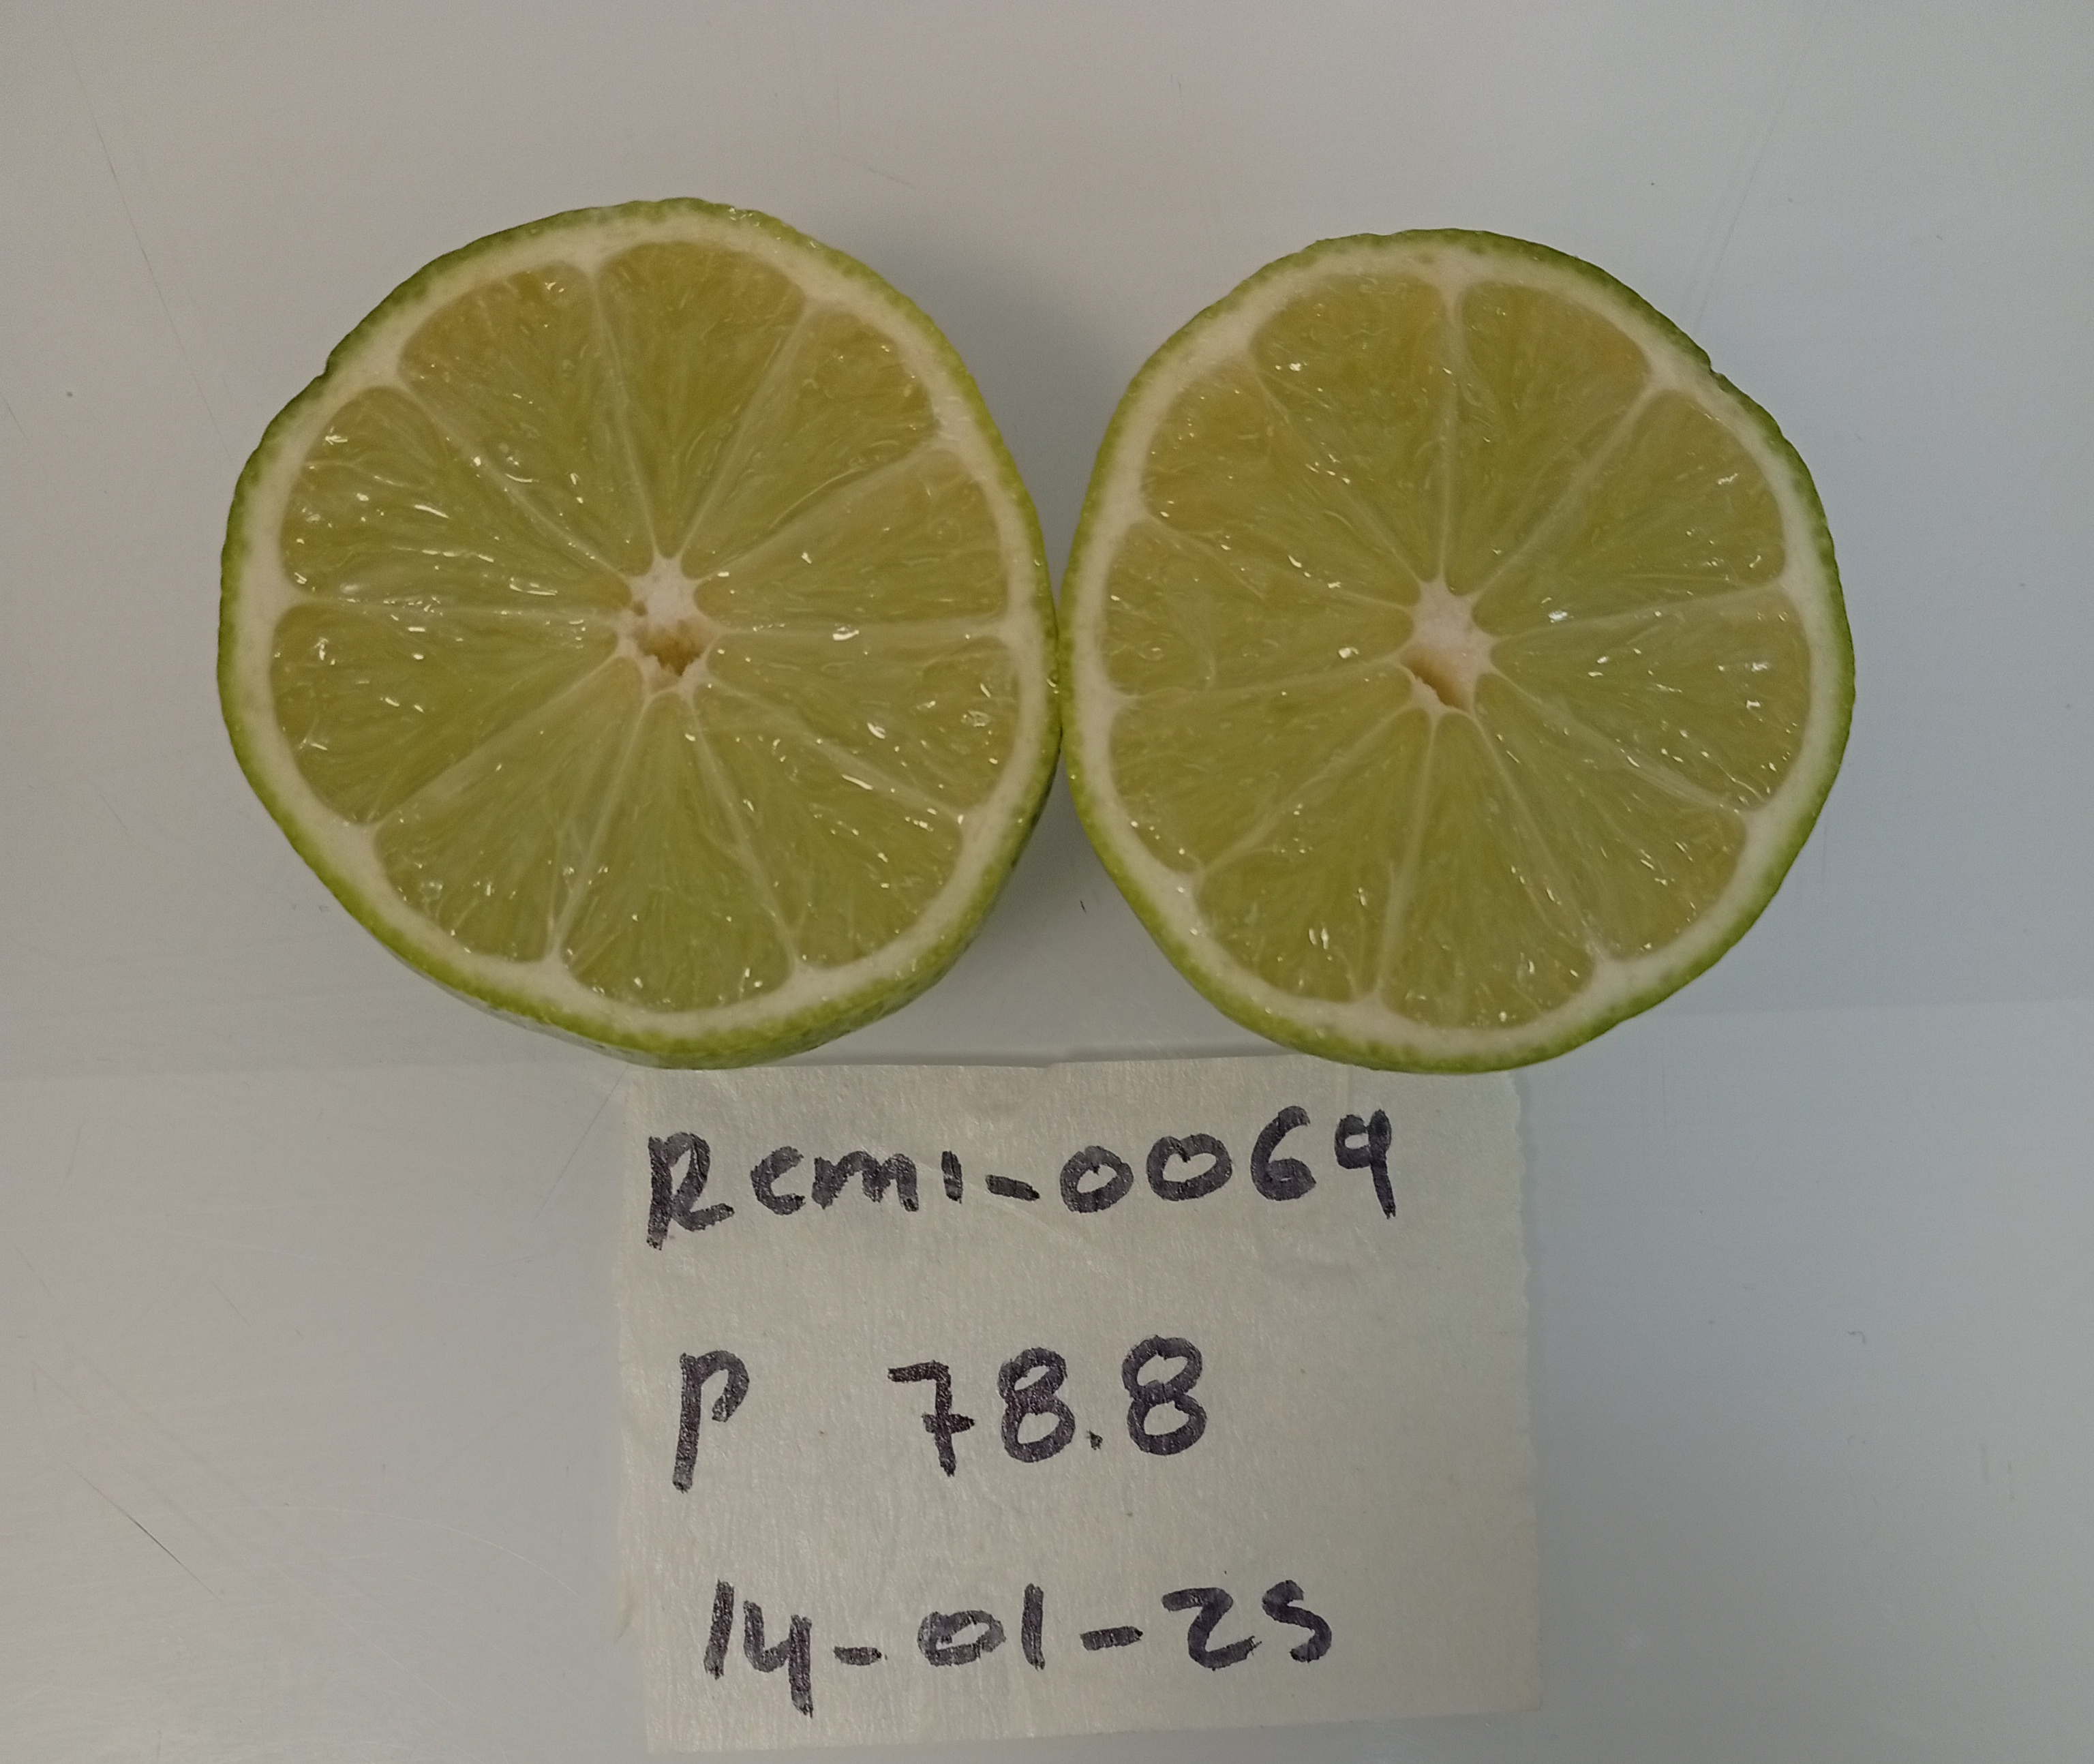 Rcmi-0069
P 78.8
14-01-25